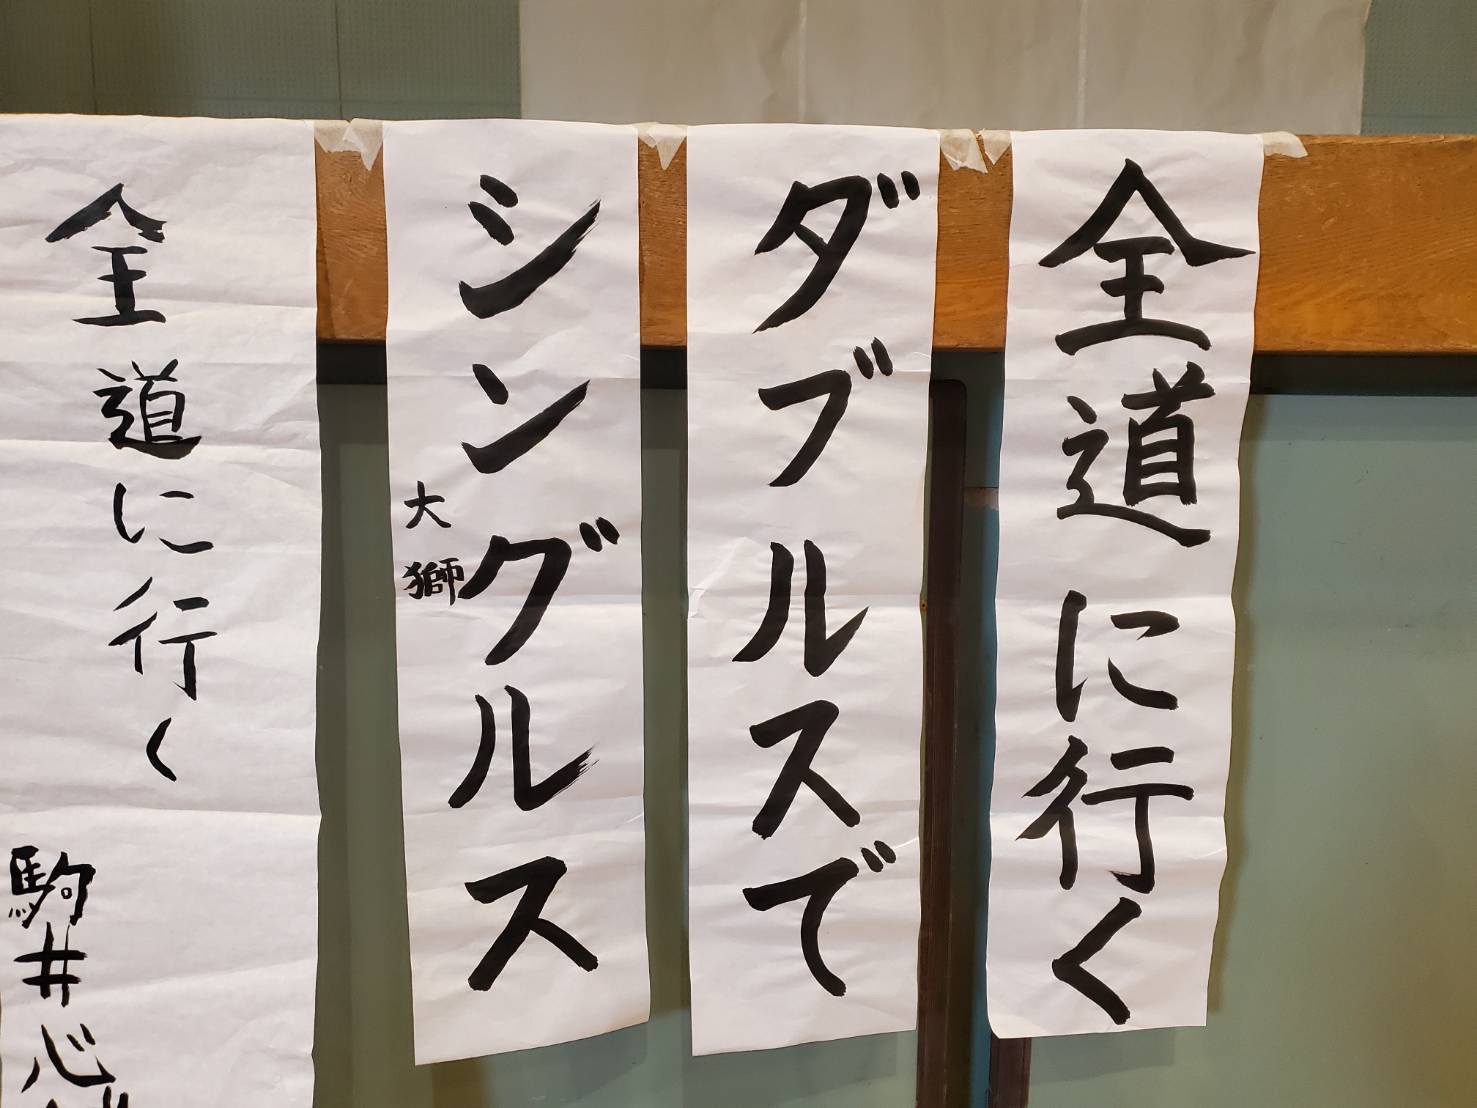 全道に行く
ダブルスで
シングルス
大獅
全道に行く
駒井心